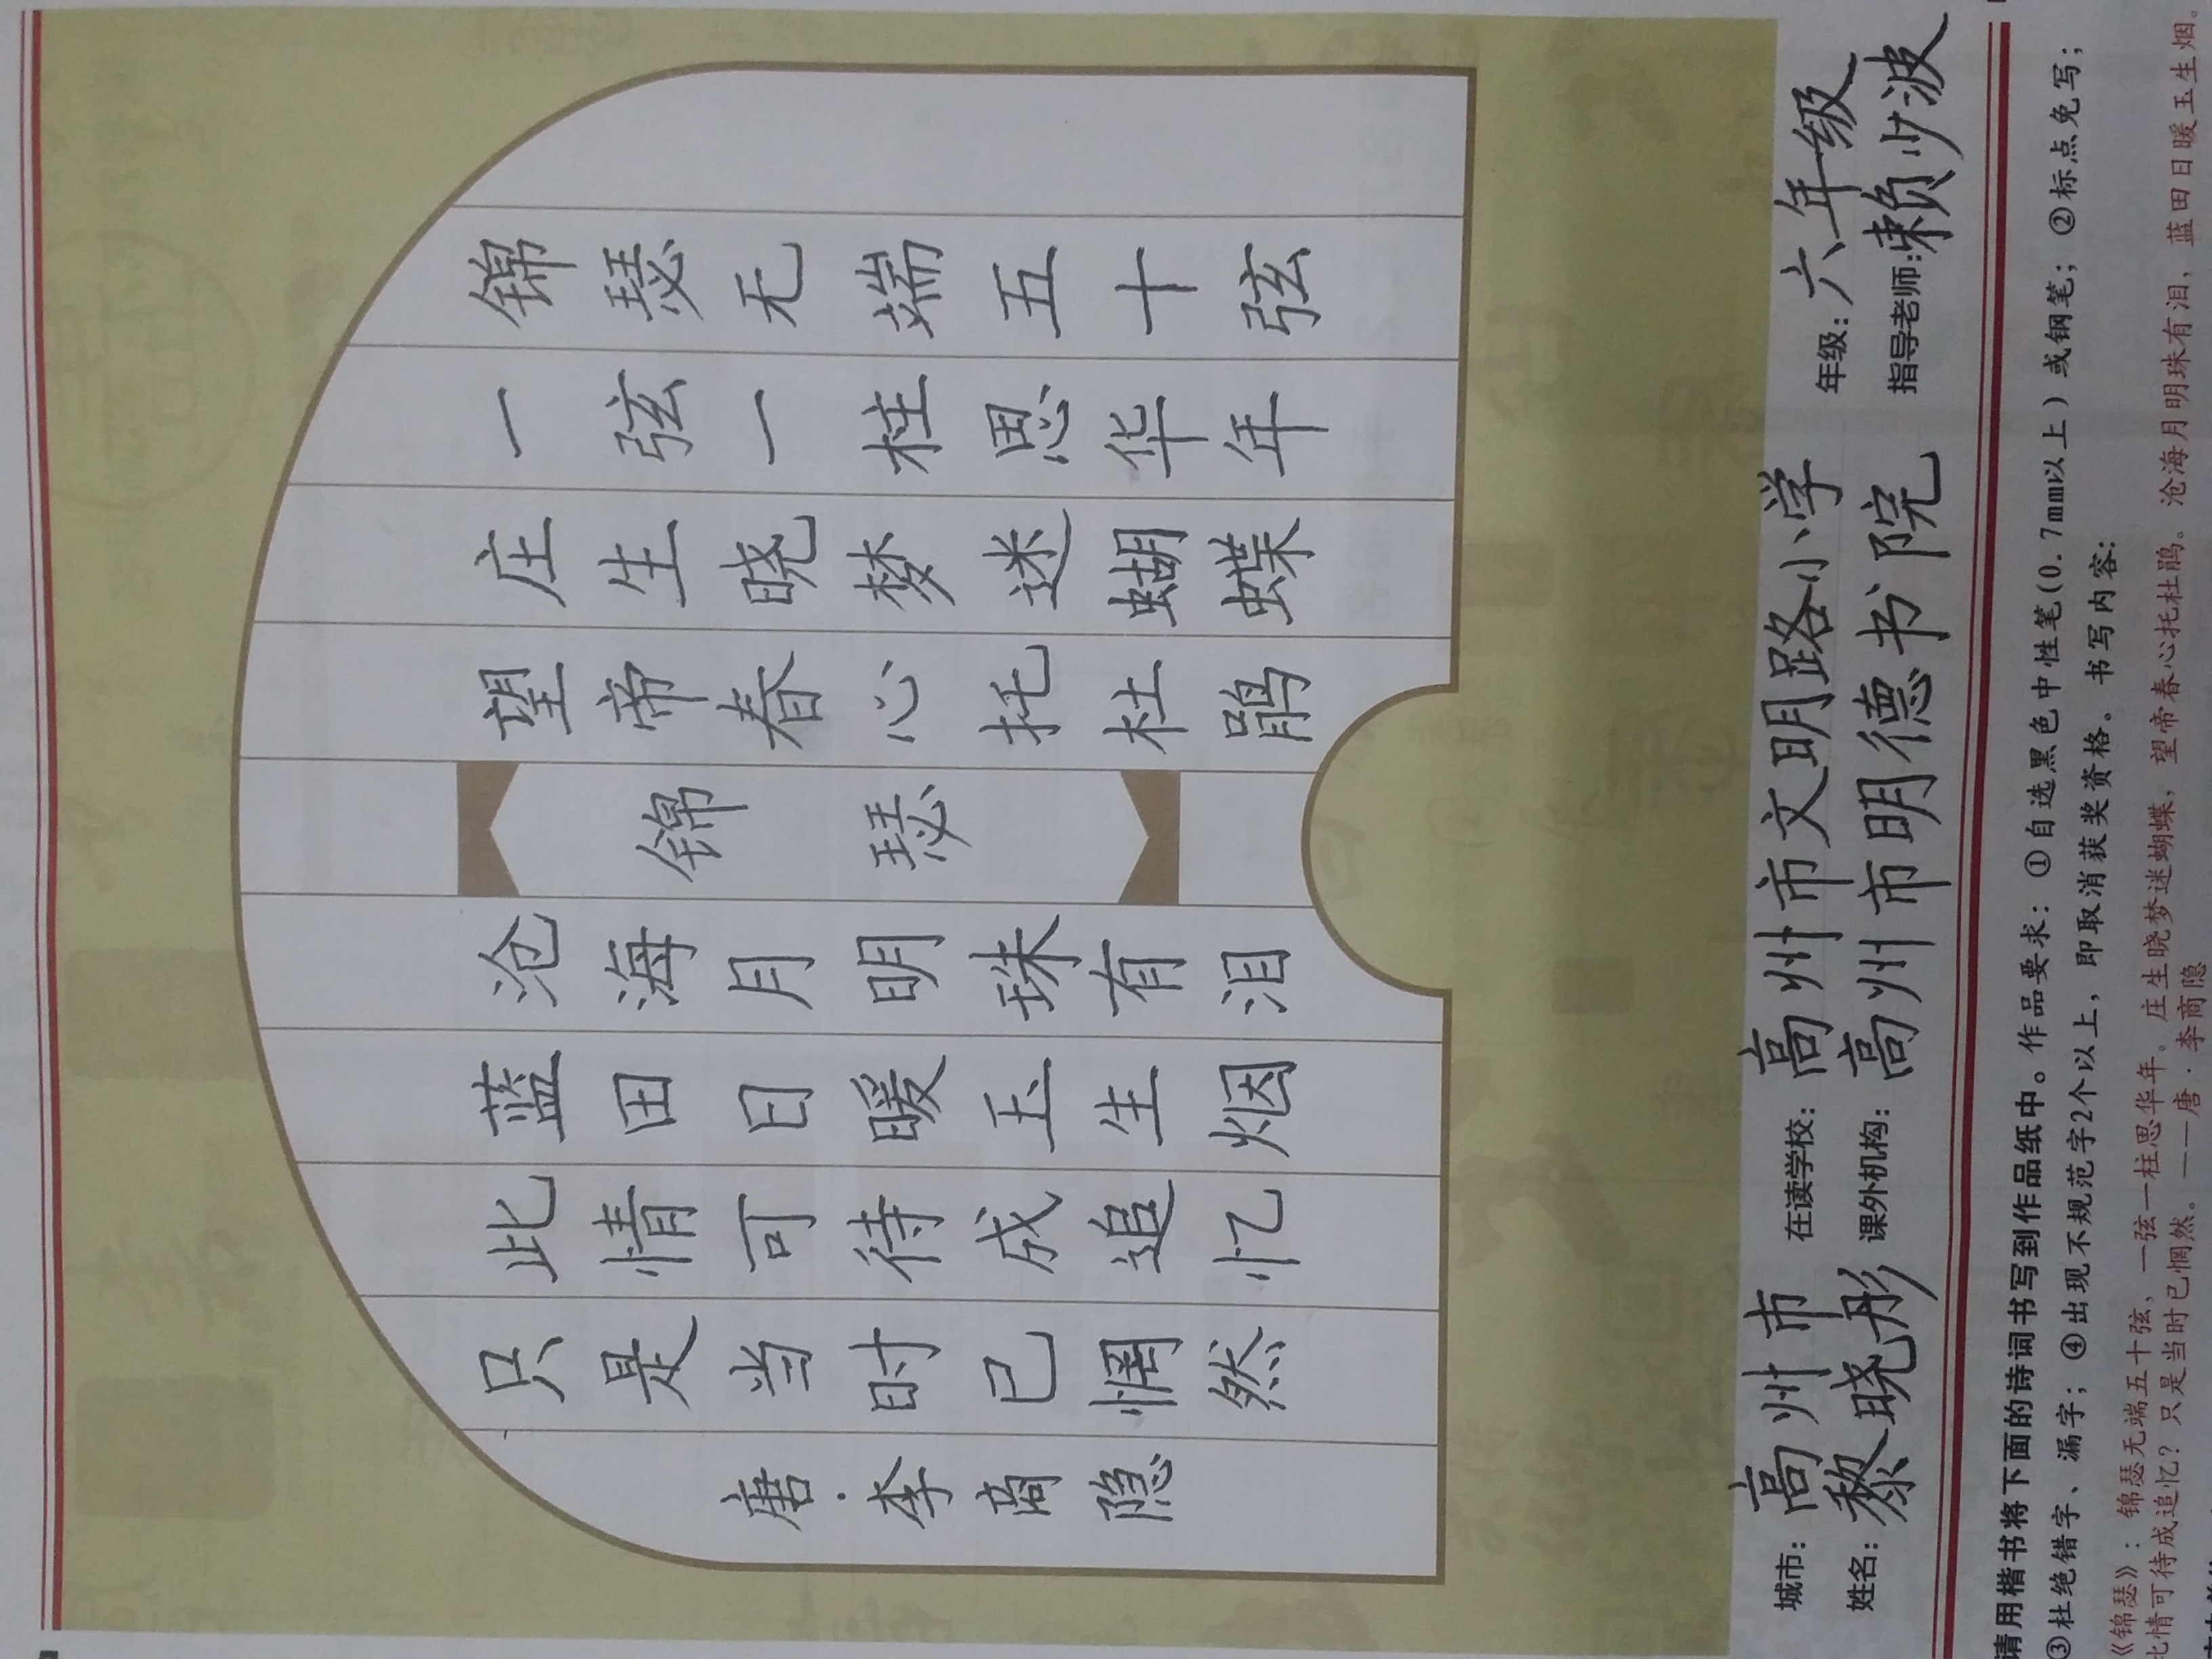 锦瑟无端五十弦
一弦一柱思华年
庄生晓梦迷蝴蝶
望帝春心托杜鹃
锦瑟
沧海月明珠有泪
蓝田日暖玉生烟
此情可待成追忆
只是当时已惘然
唐·李商隐
城市：高州市 在读学校：高州市文明路小学 年级：六年级
姓名：黎晓彤 课外机构：高州市明德书院 指导老师：赖少波
请用楷书将下面的诗词书写到作品纸中。作品要求：①自选黑色中性笔(0.7mm以上)或钢笔；②标点免写；
③杜绝错字、漏字；④出现不规范字2个以上，即取消获奖资格。书写内容：
《锦瑟》：锦瑟无端五十弦，一弦一柱思华年。庄生晓梦迷蝴蝶，望帝春心托杜鹃。沧海月明珠有泪，蓝田日暖玉生烟。
此情可待成追忆？只是当时已惘然。——唐·李商隐